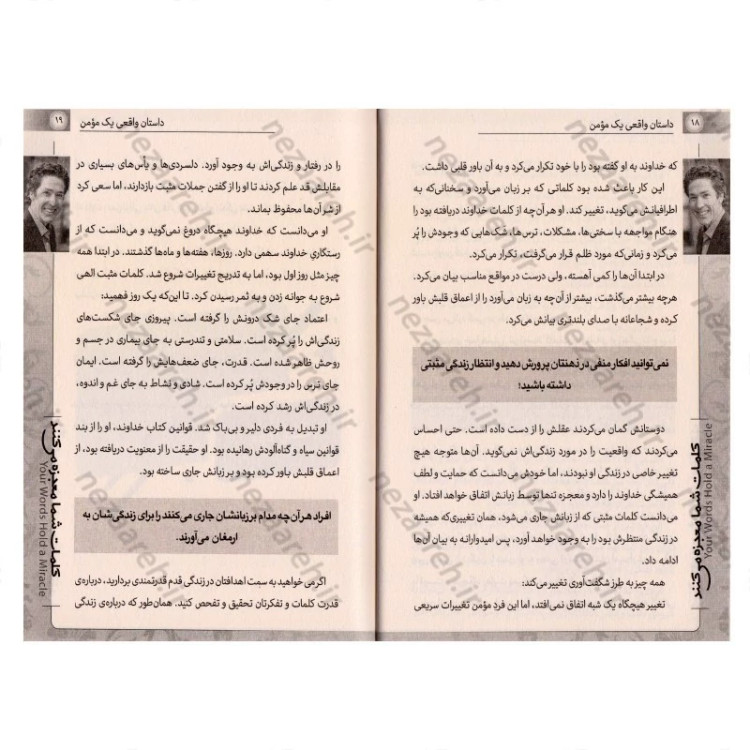 ۱۸
داستان واقعی یک مؤمن
که خداوند به او گفته بود را با خود تکرار می‌کرد و به آن باور قلبی داشت.
این کار باعث شده بود کلماتی که بر زبان می‌آورد و سخنانی‌که به
اطرافیانش می‌گوید، تغییر کند. او هر آن‌چه از کلمات خداوند دریافته بود را
هنگام مواجهه با سختی‌ها، مشکلات، ترس‌ها، شک‌هایی که وجودش را پُر
می‌کرد و زمانی‌که مورد ظلم قرار می‌گرفت، تکرار می‌کرد.
در ابتدا آن‌ها را کمی آهسته، ولی درست در مواقع مناسب بیان می‌کرد.
هرچه بیشتر می‌گذشت، بیشتر از آن‌چه به زبان می‌آورد را از اعماق قلبش باور
کرده و شجاعانه با صدای بلندتری بیانش می‌کرد.
نمی‌توانید افکار منفی در ذهنتان پرورش دهید و انتظار زندگی مثبتی
داشته باشید؛
دوستانش گمان می‌کردند عقلش را از دست داده است. حتی احساس
می‌کردند که واقعیت را در مورد زندگی‌اش نمی‌گوید. آن‌ها متوجه هیچ
تغییر خاصی در زندگی او نبودند، اما خودش می‌دانست که حمایت و لطف
همیشگی خداوند را دارد و معجزه تنها توسط زبانش اتفاق خواهد افتاد. او
می‌دانست کلمات مثبتی که از زبانش جاری می‌شود، همان تغییری‌که همیشه
در زندگی منتظرش بود را به وجود خواهد آورد، پس امیدوارانه به بیان آن‌ها
ادامه داد.
همه چیز به طرز شگفت‌آوری تغییر می‌کند:
تغییر هیچگاه یک شبه اتفاق نمی‌افتد، اما این فردِ مؤمن تغییرات سریعی
کلمات شما معجزه می‌کنند
Your Words Hold a Miracle
داستان واقعی یک مؤمن
۱۹
را در رفتار و زندگی‌اش به وجود آورد. دلسردی‌ها و یأس‌های بسیاری در
مقابلش قد علم کردند تا او را از گفتن جملات مثبت بازدارند، اما سعی کرد
از شر آن‌ها محفوظ بماند.
او می‌دانست که خداوند هیچگاه دروغ نمی‌گوید و می‌دانست که از
رستگاریِ خداوند سهمی دارد. روزها، هفته‌ها و ماه‌ها گذشتند. در ابتدا همه
چیز مثل روز اول بود، اما به تدریج تغییرات شروع شد. کلمات مثبت الهی
شروع به جوانه زدن و به ثمر رسیدن کرد. تا این‌که یک روز فهمید:
اعتماد جای شک درونش را گرفته است. پیروزی جای شکست‌های
زندگی‌اش را پُر کرده است. سلامتی و تندرستی به جای بیماری در جسم و
روحش ظاهر شده است. قدرت، جای ضعف‌هایش را گرفته است. ایمان
جای ترس را در وجودش پُر کرده است. شادی و نشاط به جای غم و اندوه،
در زندگی‌اش رشد کرده است.
او تبدیل به فردی دلیر و بی‌باک شد. قوانین کتاب خداوند، او را از بند
قوانین سیاه و گناه‌آلودش رهانیده بود. او حقیقت را از معنویت دریافته بود، از
اعماق قلبش باور کرده بود و بر زبانش جاری ساخته بود.
افراد هر آن چه مدام بر زبانشان جاری می‌کنند را برای زندگی‌شان به
ارمغان می‌آورند.
اگر می خواهید به سمت اهدافتان در زندگی قدم قدرتمندی بردارید، درباره‌ی
قدرت کلمات و تفکرتان تحقیق و تفحص کنید. همان‌طور که درباره‌ی زندگی
کلمات شما معجزه می‌کنند
Your Words Hold a Miracle
nezareh.ir